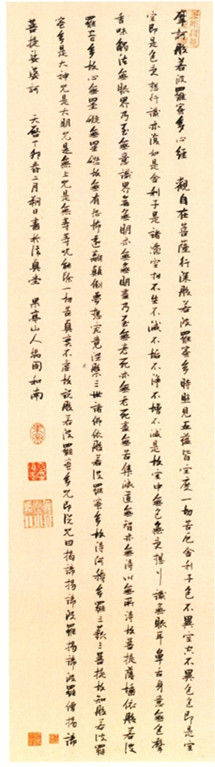 摩訶般若波羅蜜多心經 觀自在菩薩行深般若波羅蜜多時照見五蘊皆空度一切苦厄舍利子色不異空空不異色色即是空
空即是色受想行識亦復如是舍利子是諸法空相不生不滅不垢不淨不增不減是故空中無色無受想行識無眼耳鼻舌身意無色聲
香味觸法無眼界乃至無意識界無無明亦無無明盡乃至無老死亦無老死盡無苦集滅道無智亦無得以無所得故菩提薩埵依般若波
羅蜜多故心無罣礙無罣礙故無有恐怖遠離顛倒夢想究竟涅槃三世諸佛依般若波羅蜜多故得阿耨多羅三藐三菩提故知般若波羅
蜜多是大神咒是大明咒是無上咒是無等等咒能除一切苦真實不虛故說般若波羅蜜多咒即說咒曰揭諦揭諦波羅揭諦波羅僧揭諦
菩提娑婆訶 天啟丁卯春二月朔日書於 山人 瑞圖和南